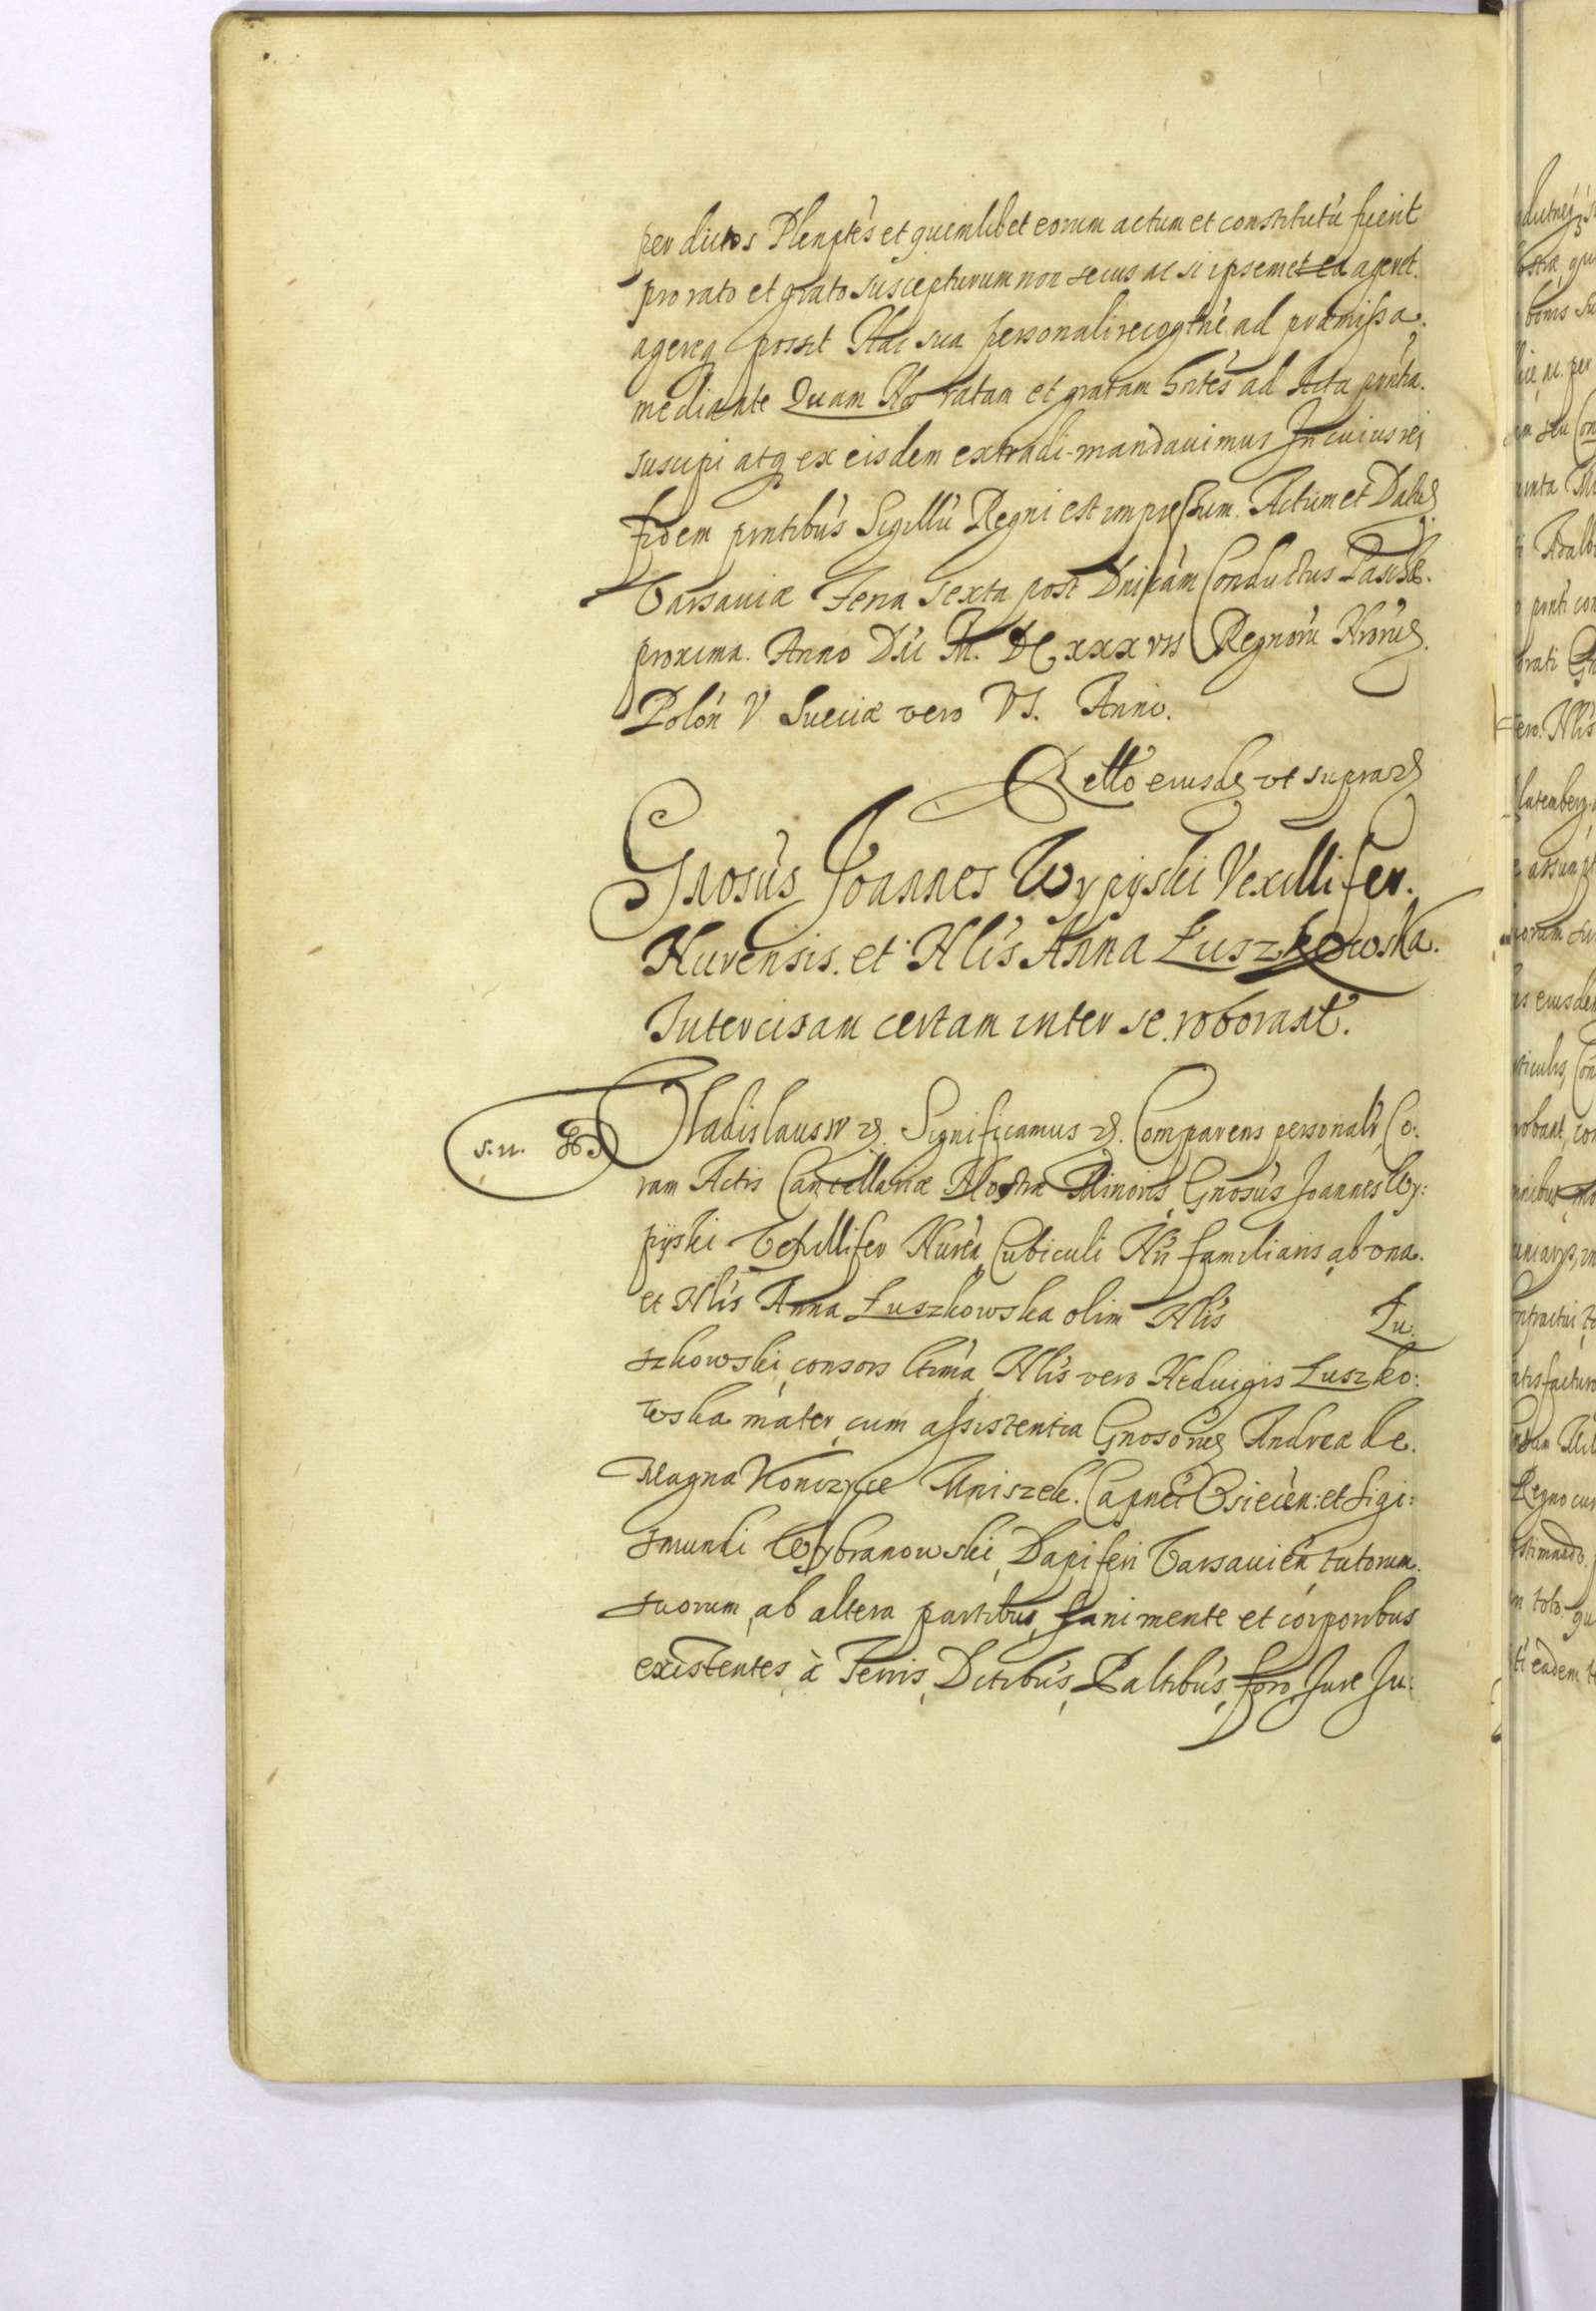 per dictos Plenptes et quemlibet eorum actum et constitutũ fuerit
pro rato et grato suscepturum non secus ac si ipsemet ea ageret.
agereq posset Hac sua personali recogtne ad præmissa.
mediante Quam Nos ratam et gratam hntes ad Acta pñtia.
suscipi atq ex eisdem extradi mandauimus In cuius rei
fidem pñtibus Sigillũ Regni est impressum. Actum et Datũ
Varsauiæ Feria Sexta post Dnicam Conductus Pasch.
proxima. Anno Dñi M. DC xxxvii Regnorũ Nrorũ
Polon V Sueciæ vero VI. Anno.
Rello eiusdẽ ut supra
Gnosus Joannes Wypyski Vexillifer.
Nurensis. et Nlis Anna Łuszkowska.
Intercisam certam inter se. roborant.
s. n.
Vladislaus IV Significamus Comparens personalr Co:
ram Actis Cancellariæ Nostræ Minoris, Gnosus Joannes Wy:
pyski Vexillifer Nureñ Cubiculi Nri familiaris, ab vna.
et Nlis Anna Łuszkowska olim Nlis Łu:
szkowski, consors ltima, Nlis vero Heduigis Łuszko:
wska mater, cum assistentia Gnosorũ Andreæ de.
Magna Konczyce Mniszek. Capnei Osiecen: et Sigi:
smundi Wybranowski, Dapiferi Varsauien tutorum.
suorum, ab altera partibus, sani mente et corporibus
existentes, à Terris, Dctibus, Paltibus, foro, Jure Ju: